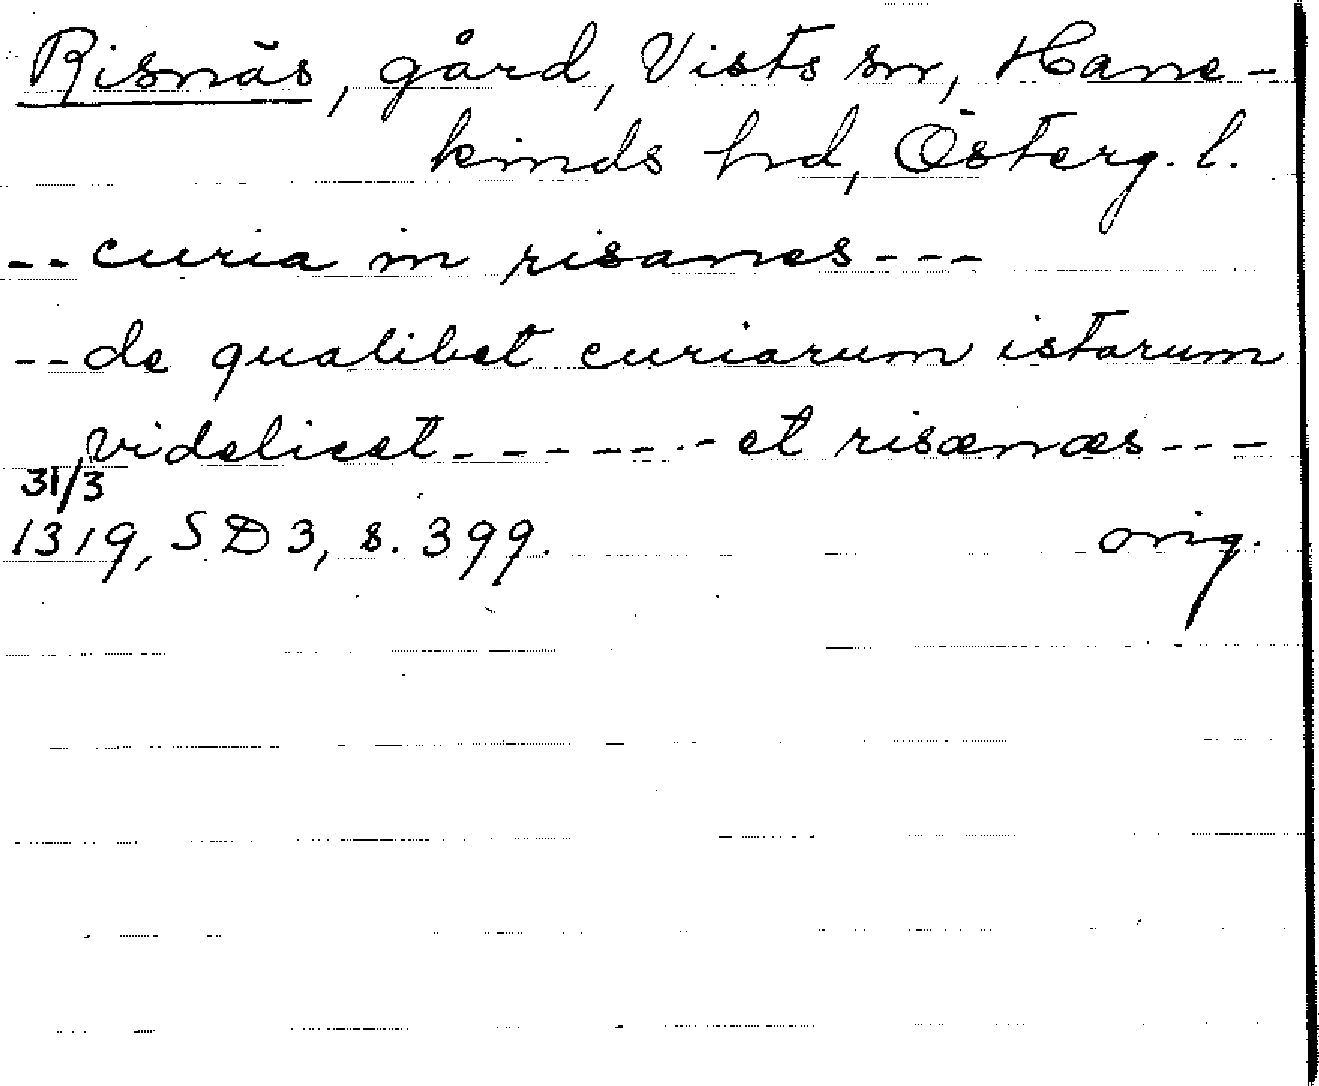 Risnäs, gård, Vists sn, Hane-
kinds hd, Österg. l.
-- curia in risanes ---
-- de qualibet curiarum istarum
videlicet ------ et risænæs ---
31/3
1319, SD 3, s. 399. orig.